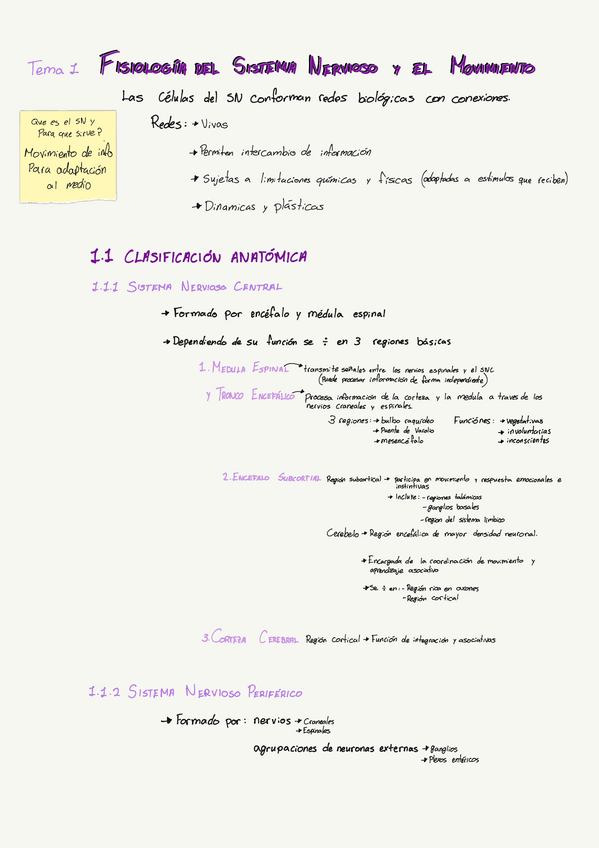 Tema 1 FISIOLOGÍA DEL SISTEMA NERVIOSO Y EL MOVIMIENTO
Las Células del SN conforman redes biológicas con conexiones.
Que es el SN y
Para que sirve?
Movimiento de info
Para adaptación
al medio
Redes: → Vivas
→ Permiten intercambio de información
→ Sujetas a limitaciones químicas y físicas (adaptadas a estimulos que reciben)
→ Dinamicas y plásticas
1.1 CLASIFICACIÓN ANATÓMICA
1.1.1 SISTEMA NERVIOSO CENTRAL
→ Formado por encéfalo y médula espinal
→ Dependiendo de su función se ÷ en 3 regiones básicas
1. MEDULA ESPINAL → transmite señales entre los nervios espinales y el SNC
(Puede procesar información de forma independiente)
y TRONCO ENCEFÁLICO → Procesa informacion de la corteza y la medula a traves de los
nervios craneales y espinales.
3 regiones: → bulbo raquídeo Funciónes: → vegetativas
→ Puente de Varolio → involuntarias
→ mesencéfalo → inconscientes
2. ENCEFALO SUBCORTIAL Región subcortical → participa en movimiento y respuesta emocionales e
instintivas
→ Incluye: - regiones talámicas
- ganglios basales
- region del sistema limbico
Cerebelo → Región encefálica de mayor densidad neuronal.
→ Encargada de la coordinación de movimiento y
aprendizaje asociativo
→ Se ÷ en: - Región rica en axones
- Región cortical
3. CORTEZA CEREBRAL Región cortical → Función de integración y asociativas
1.1.2 SISTEMA NERVIOSO PERIFÉRICO
→ Formado por: nervios → Craneales
→ Espinales
agrupaciones de neuronas externas → ganglios
→ Plexos entéricos